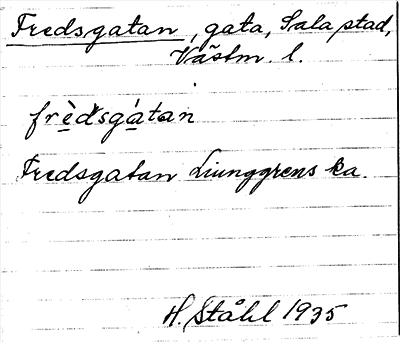 Fredsgatan, gata, Sala stad,
Västm. l.
frèdsgátan
Fredsgatan Ljunggrens ka.
H. Ståhl 1935